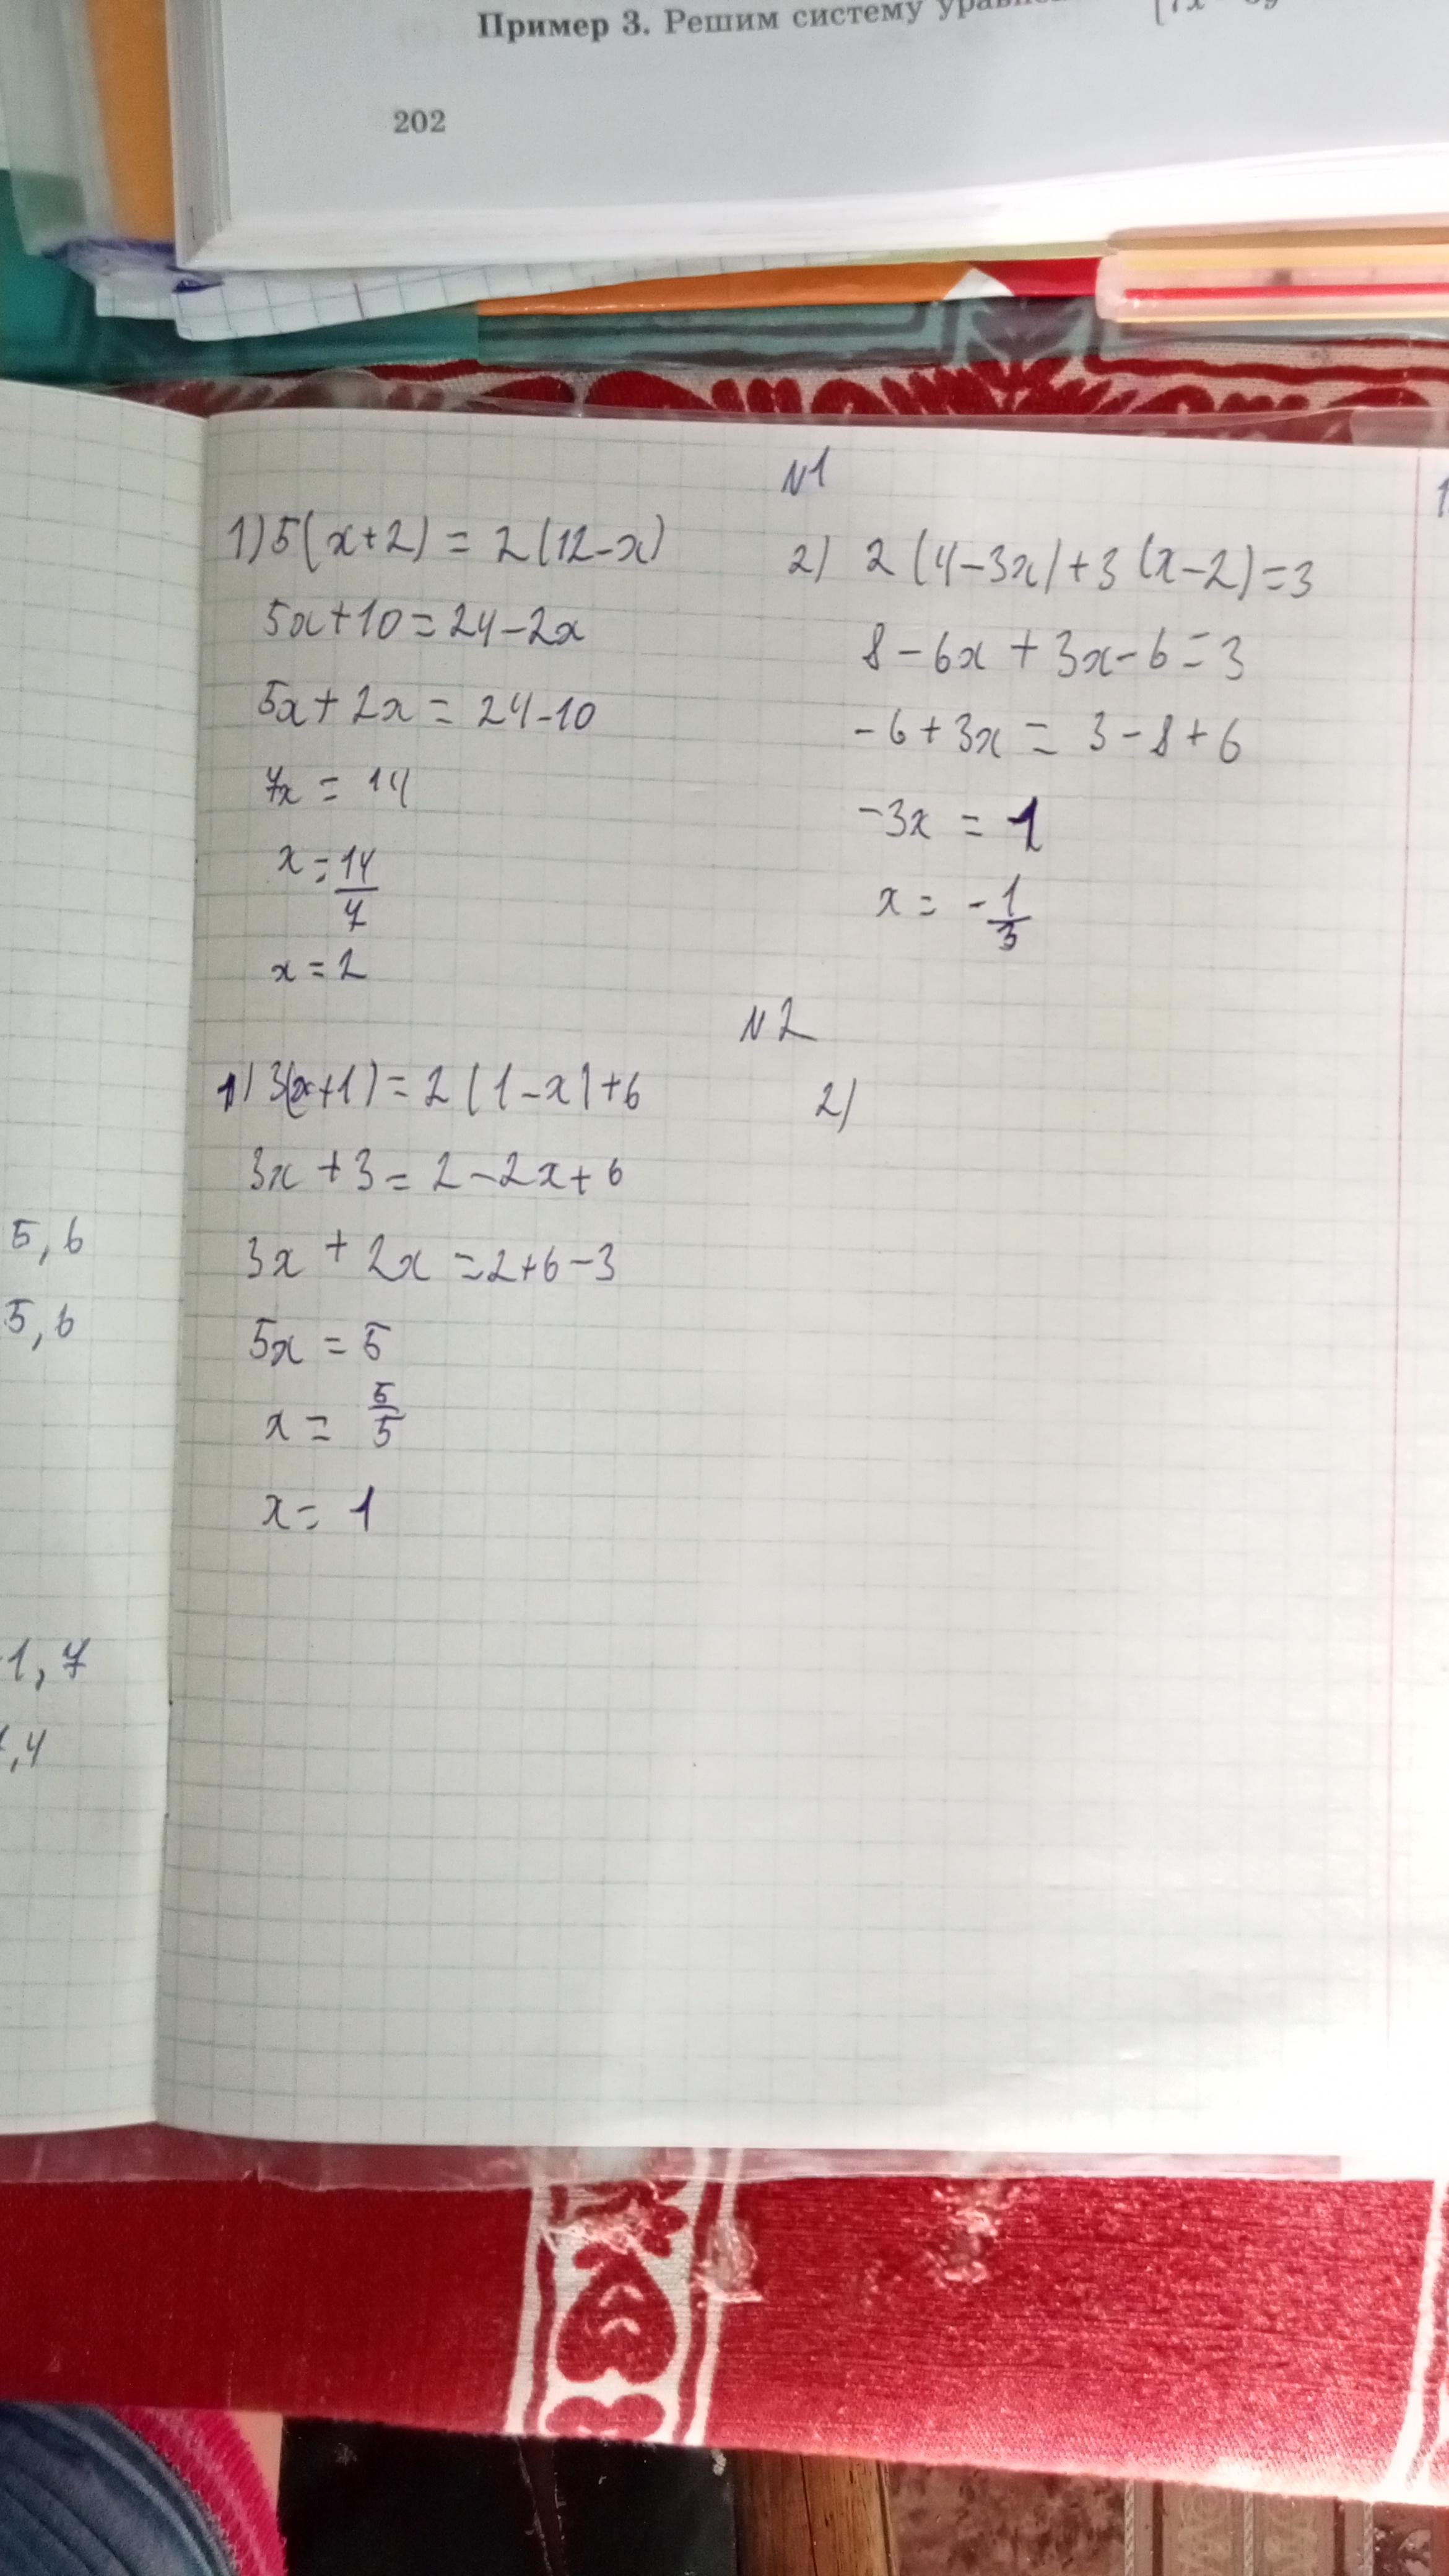 Пример 3. Решим систему
202
N1
1) 5(x+2) = 2(12-x)
5x+10=24-2x
5x+2x=24-10
7x = 14
x=14/7
x=2
2) 2(4-3x)+3(x-2)=3
8-6x+3x-6=3
-6+3x=3-8+6
-3x = 1
x = -1/3
N2
1) 3(x+1)=2(1-x)+6
3x+3=2-2x+6
3x+2x=2+6-3
5x=5
x=5/5
x=1
2)
5,6
5,6
1,7
,4